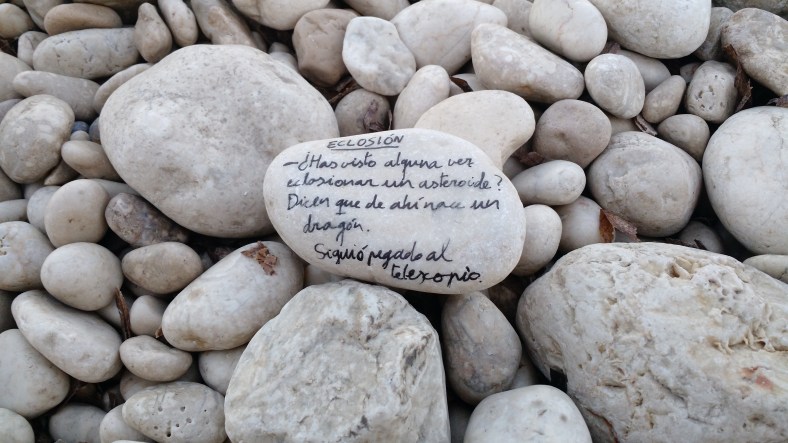 ECLOSIÓN
- ¿Has visto alguna vez
eclosionar un asteroide?
Dicen que de ahí nace un
dragón.
Siguió pegado al
telexopio.